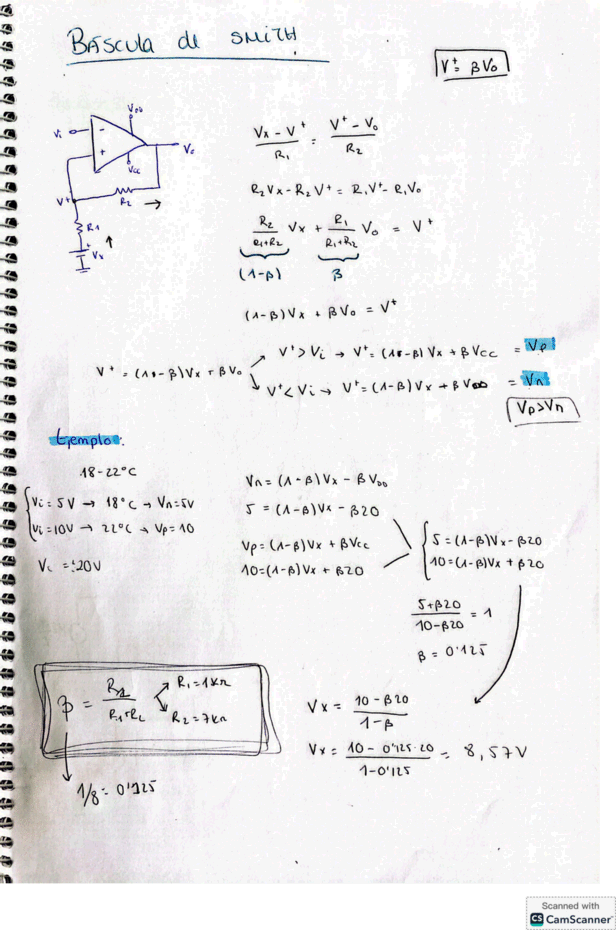 BÁSCULA de SMITH
V⁺ = βV₀
Vᵢ
-
+
V_DD
V_CC
V₀
V⁺
R₂
R₁
Vx
(Vx - V⁺)/R₁ = (V⁺ - V₀)/R₂
R₂Vx - R₂V⁺ = R₁V⁺ - R₁V₀
R₂/(R₁+R₂) Vx + R₁/(R₁+R₂) V₀ = V⁺
(1-β) β
(1-β)Vx + βV₀ = V⁺
V⁺ = (1-β)Vx + βV₀
V⁺ > Vᵢ → V⁺ = (1-β)Vx + βV_CC = Vp
V⁺ < Vᵢ → V⁺ = (1-β)Vx + βV_DD = Vn
Vp > Vn
Ejemplo:
18-22°C
Vi = 5V → 18°C → Vn = 5V
Vi = 10V → 22°C → Vp = 10
20V
Vn = (1-β)Vx - βV_DD
5 = (1-β)Vx - β20
Vp = (1-β)Vx + βVcc
10 = (1-β)Vx + β20
5 = (1-β)Vx - β20
10 = (1-β)Vx + β20
(5+β20)/(10-β20) = 1
β = 0'125
β = R₁/(R₁+R₂)
R₁ = 1kΩ
R₂ = 7kΩ
1/8 = 0'125
Vx = (10-β20)/(1-β)
Vx = (10-0'125·20)/(1-0'125) = 8,57V
Scanned with
CS CamScanner